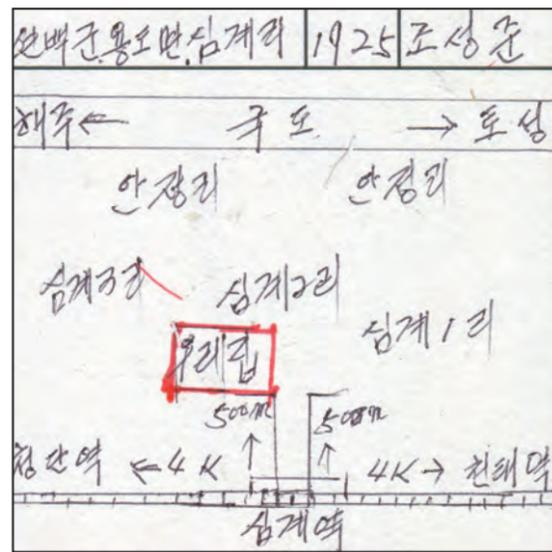 연백군.용도면.심계리 1925 조성준
해주← 국도 → 토성
안정리 안정리
심계3리 심계2리
심계1리
우리집
500m 500m
청단역 ←4K 4K→ 천태역
심계역